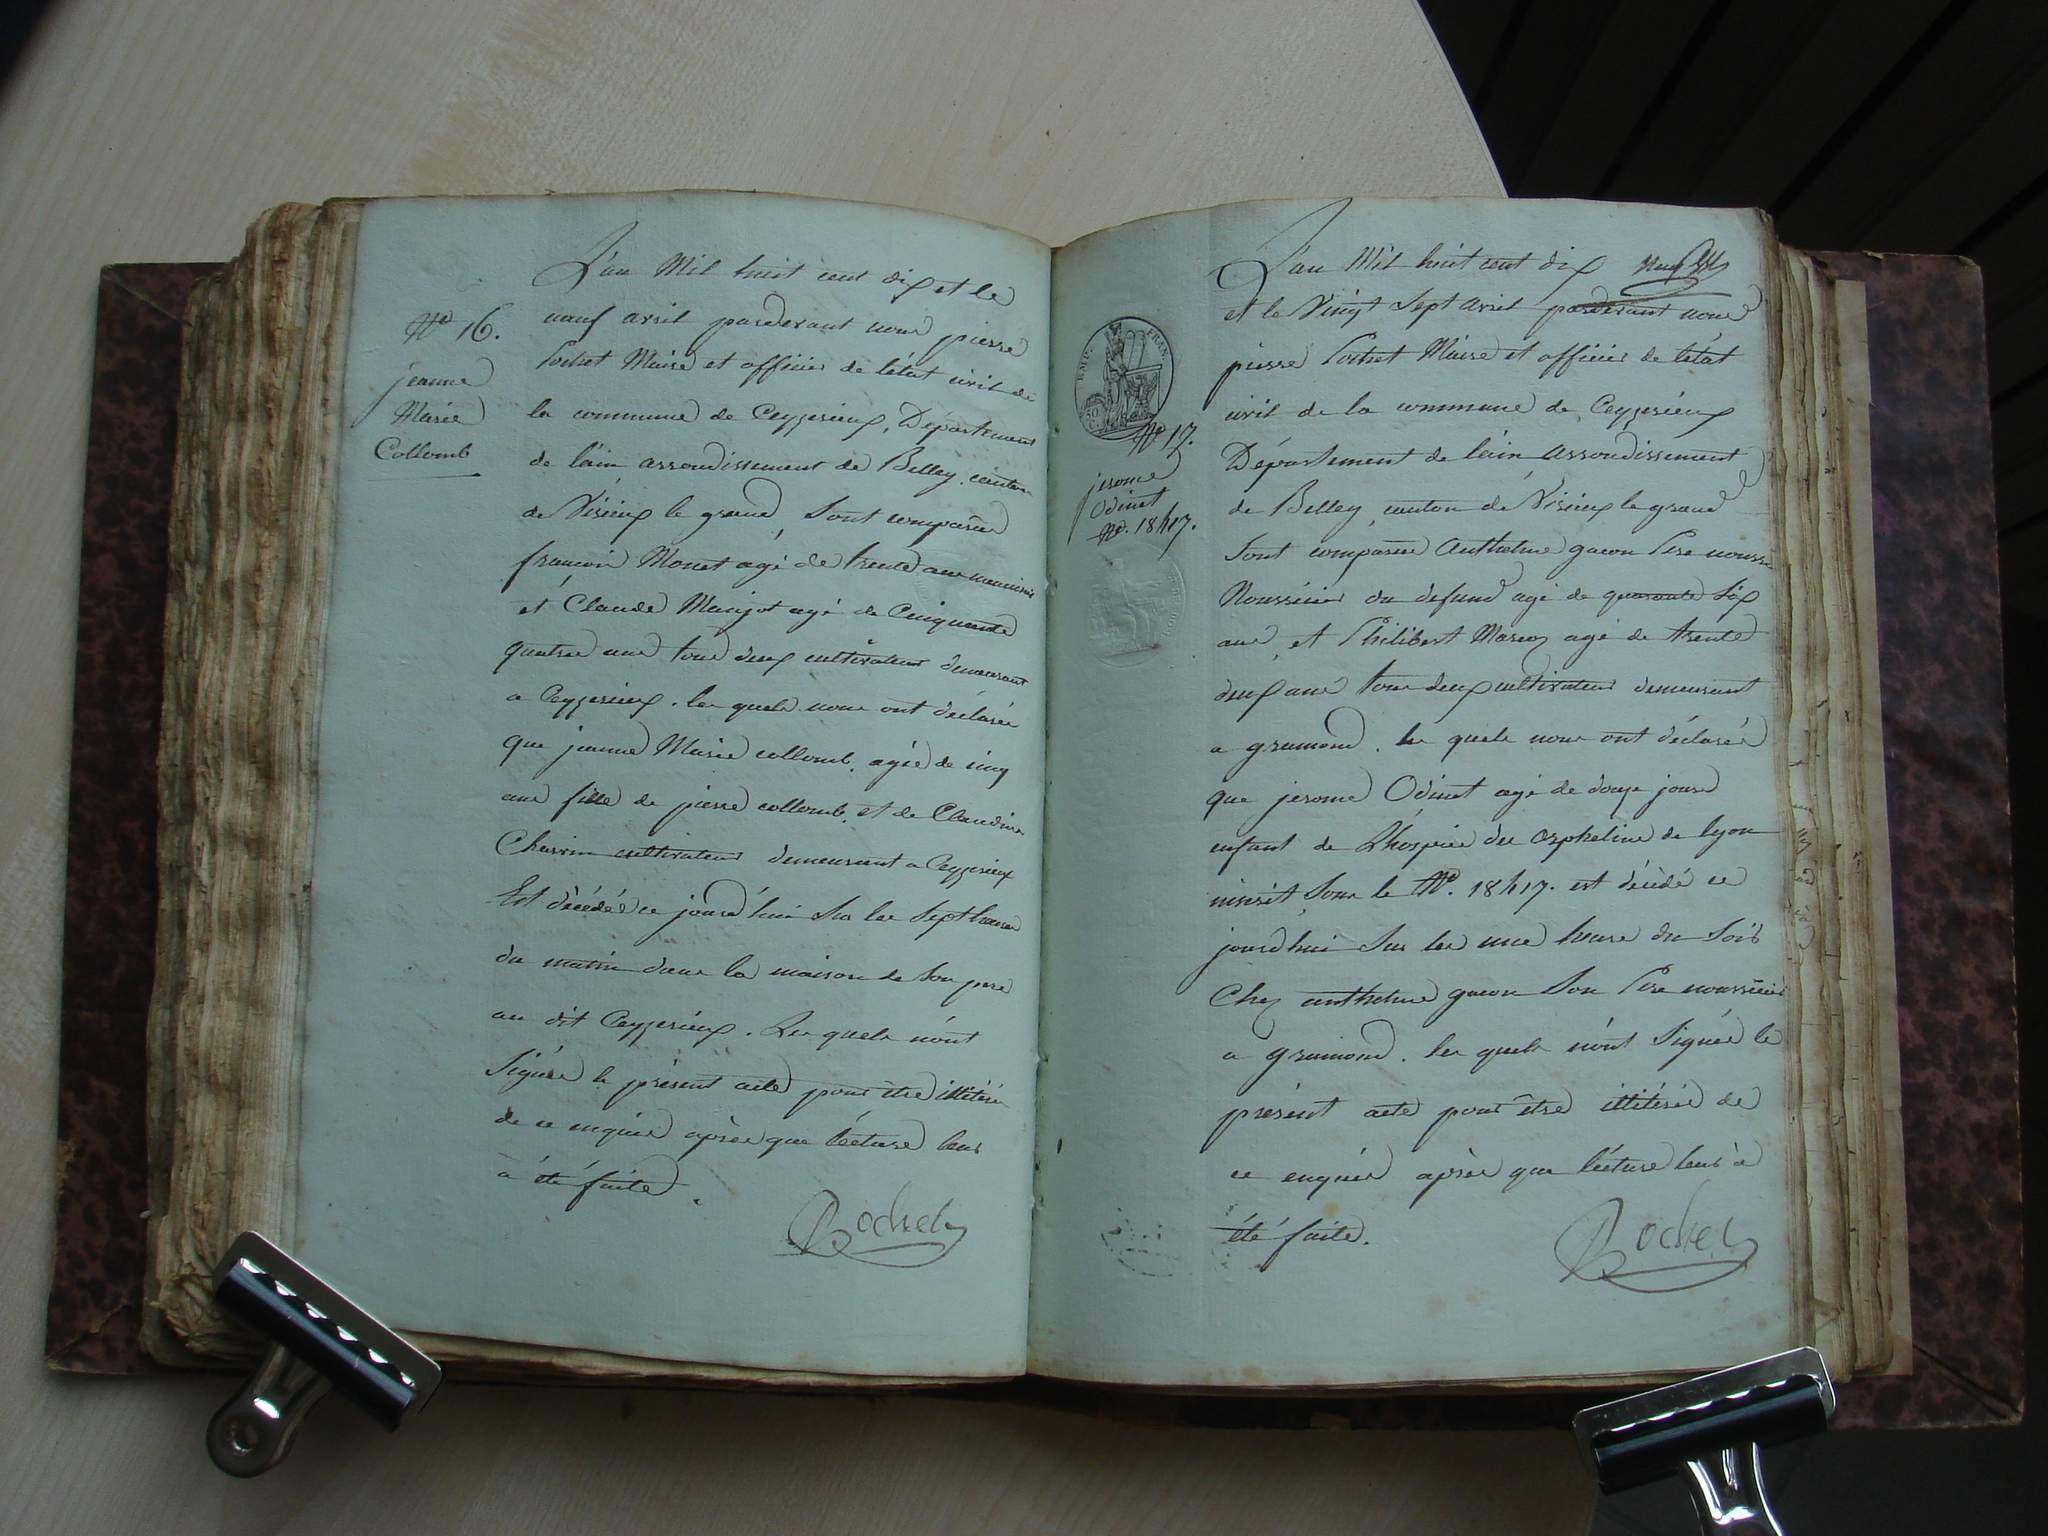 N.o 16.
jeanne
Marie
Collomb
L'an Mil huit cent dix et le
neuf avril pardevant nous pierre
Rochet Maire et officier de l'état civil de
la commune de Ceyzerieux, Département
de l'ain arrondissement de Belley, canton
de Virieux le grand, Sont comparus
françois Monet agé de trente ans
et Claude Manjot agé de Cinquante
quatre ans tous deux cultivateurs demeurant
a Ceyzerieux. les quels nous ont déclarés
que jeanne Marie collomb, agée de cinq
ans fille de pierre collomb, et de Claudine
Charvin cultivateurs demeurant a Ceyzerieux
Est décédée ce jourd'hui Sur les Sept heures
du matin dans la maison de Son pere
au dit Ceyzerieux. Les quels n'ont
Signés le présent acte pour être illitérés
de ce enquis après que lécture leurs
à été faite.
Rochet
EMP. FRAN.
50 C.
N.o 17.
jerome
Odinet
N.o 18417.
L'an Mil huit cent dix
et le Vingt Sept avril pardevant nous
pierre Rochet Maire et officier de l'état
civil de la commune de Ceyzerieux
Département de l'ain Arrondissement
de Belley, canton de Virieux le grand
Sont comparus Anthelme gacon Pere
Nourricier du defund agé de quarante Six
ans, et Philibert agé de trente
deux ans tous deux cultivateurs demeurant
a gramond. les quels nous ont déclarés
que jerome Odinet agé de douze jours
enfant de L'hospice des orphelins de lyon
inscrit Sous le N.o 18417. est décédé ce
jourdhui Sur les une heure du Soir
Chez anthelme gacon Son Pere nourricier
a gramond. les quels n'ont Signés le
présent acte pour être illitérés de
ce enquis après que lécture leurs à
été faite.
Rochet